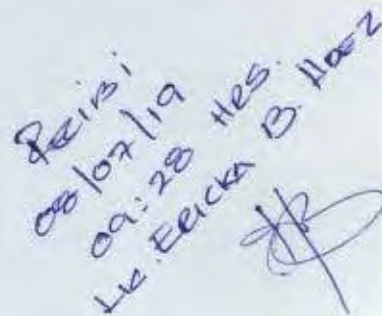 Recibi
08/07/19
09:28 HRS.
Lic. ERICKA B. Hdez